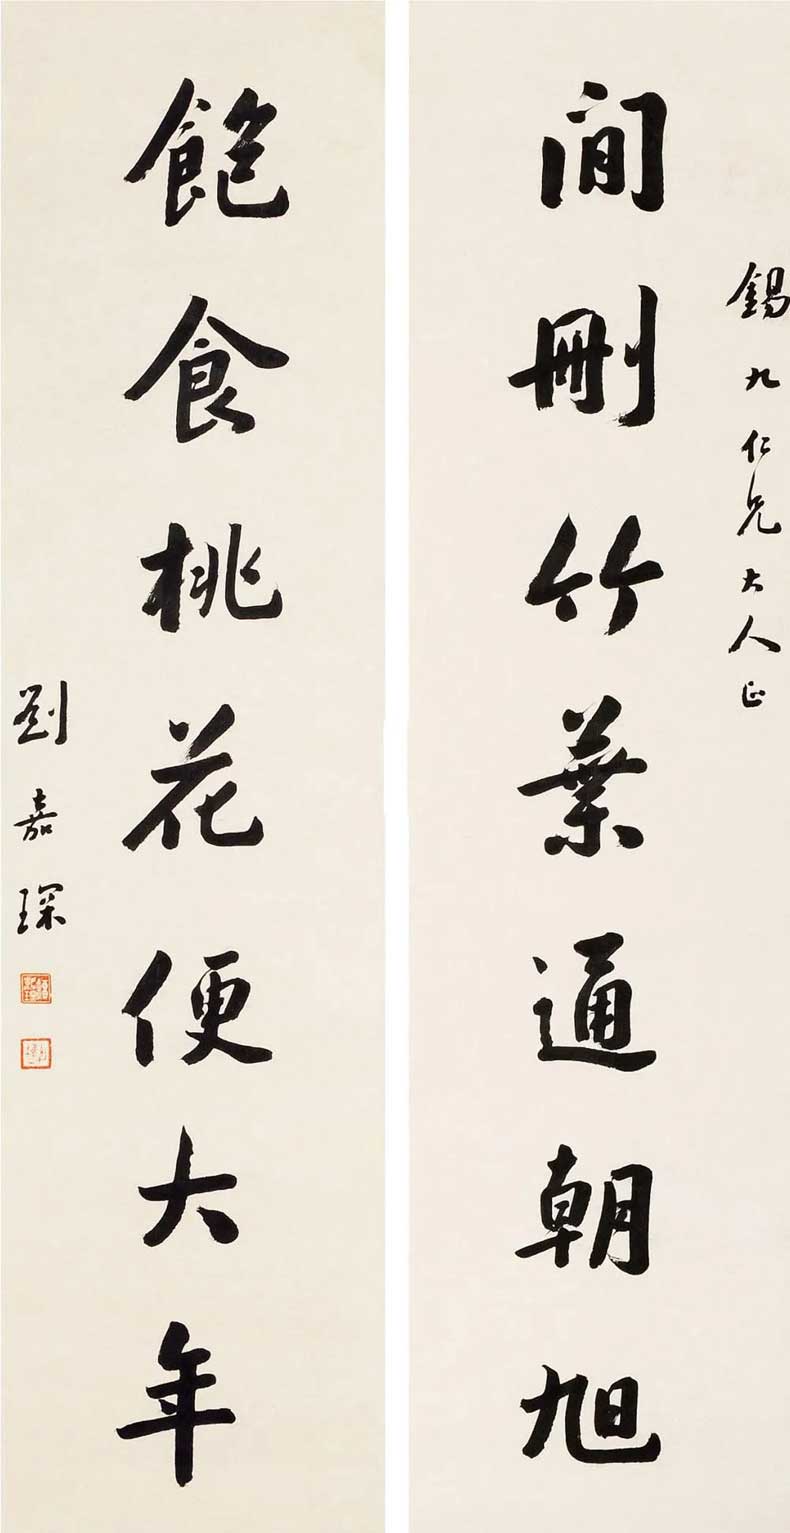 錫九仁兄大人正
間刪竹葉通朝旭
飽食桃花便大年
劉嘉琛